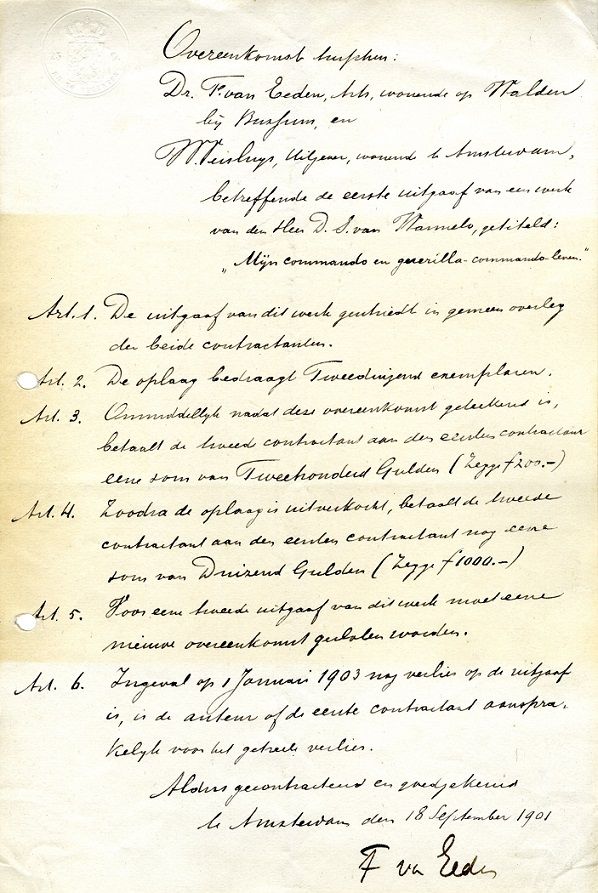 Overeenkomst tusschen:
Dr. F. van Eeden, Arts, wonende op Walden
bij Bussum, en
W. Versluys, Uitgever, wonend te Amsterdam,
betreffende de eerste uitgaaf van een werk
van den Heer D. S. van Warmelo, getiteld:
"Mijn commando en guerilla-commando-leven."
Art. 1. De uitgaaf van dit werk geschiedt in gemeen overleg
der beide contractanten.
Art. 2. De oplaag bedraagt Tweeduizend exemplaren.
Art. 3. Onmiddellijk nadat deze overeenkomst geteekend is,
betaalt de tweede contractant aan den eersten contractant
eene som van Tweehonderd Gulden (Zegge f 200.-)
Art. 4. Zoodra de oplaag is uitverkocht, betaalt de tweede
contractant aan den eersten contractant nog eene
som van Duizend Gulden (Zegge f 1000.-)
Art. 5. Voor eene tweede uitgaaf van dit werk moet eene
nieuwe overeenkomst gesloten worden.
Art. 6. Ingeval op 1 Januari 1903 nog verlies op de uitgaaf
is, is de auteur of de eerste contractant aanspra-
kelijk voor het geheele verlies.
Aldus gecontracteerd en goedgekeurd
te Amsterdam den 18 September 1901
F van Eeden